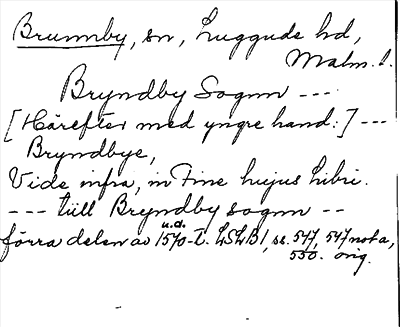 Brunnby, sn, Luggude hd,
Malm. l.
Bryndby Sognn ---
[Härefter med yngre hand:] ---
Bryndbye,
Vide infra, in Fine hujus Libri.
--- till Bryndby sognn --
u.d.
förra delen av 1570-t. LSLB1, ss. 547, 547 nota,
550. orig.